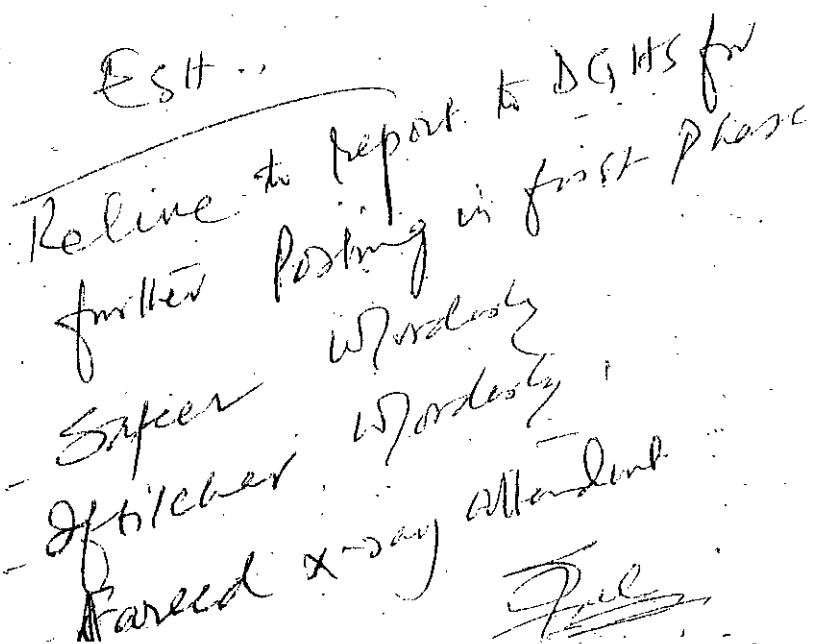 Estt..
Relive to report to DGHS for
further Posting in first phase
- Safeer W/orderly
- Iftikher W/orderly
Fareed x-ray attendent